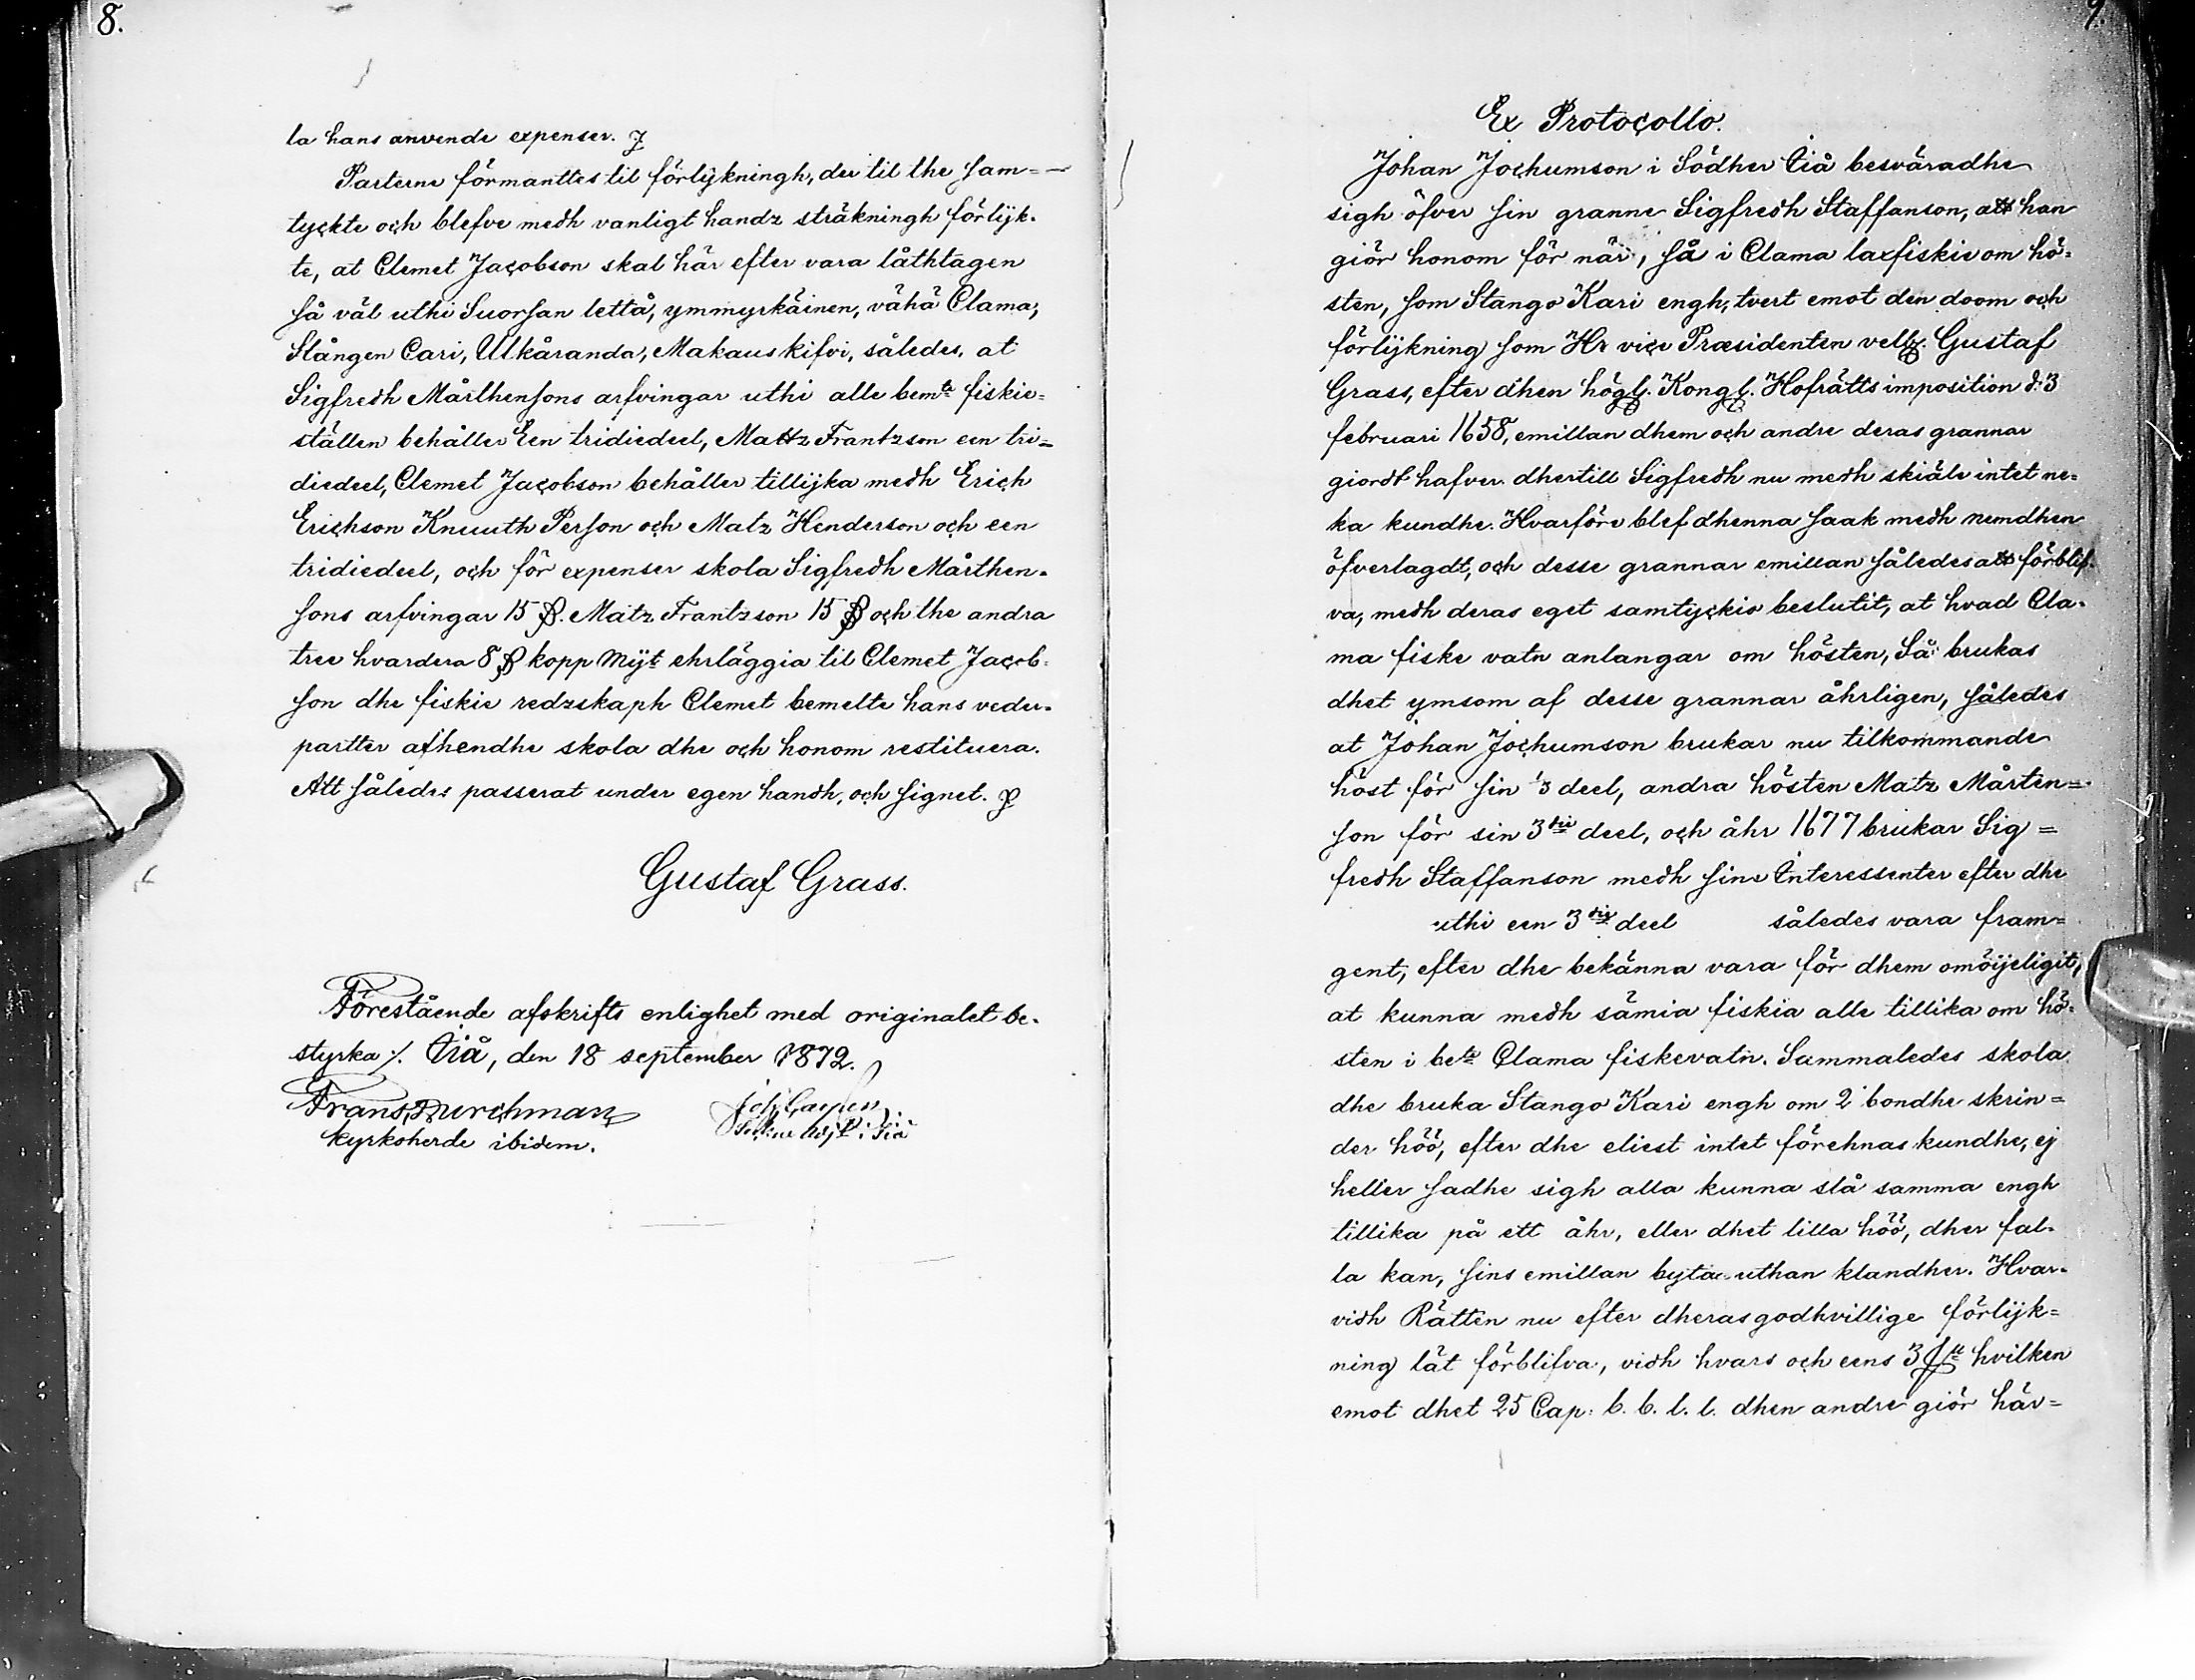 8.
la hans anvende expenser.
Parterne förmanttes til förlijkningh, der til the sam=
tyckte och blefve medh vanligt handz sträkningh förlijk-
te, at Clemet Jacobson skal här efter vara låthtagen
så väl uthi Suorsan lettå, ymmyrkäinen, vähä Clama,
Stången Cari, Ulkåranda, Makauskifvi, således, at
Sigfredh Mårthensons arfvingar uthi alle bemte fiskie=
ställen behåller Een tridiedeel, Mattz Frantzson een tri=
diedeel, Clemet Jacobson behåller tillijka medh Erich
Erichson Knuuth Person och Matz Henderson och een
tridiedeel, och för expenser skola Sigfredh Mårthen-
sons arfvingar 15 . Matz Frantzson 15 och the andra
tree hvardera 8 kopp mijt ehrläggia til Clemet Jacob-
son dhe fiskie redzskaph Clemet bemelte hans veder-
partter afhendhe skola dhe och honom restituera.
Att således passerat under egen handh, och signet.
Gustaf Grass.
Förestående afskrifts enlighet med originalet be-
styrka ⁒. Åiå, den 18 september 1872.
Frans Durchman
kyrkoherde ibidem.
9.
Ex Protocollo.
Johan Jochumson i Södher Iiå besväradhe
sigh öfver sin granne Sigfredh Staffanson, att han
giör honom för när, så i Clama laxfiskie om hö-
sten, som Stango Kari engh, tvert emot den doom och
förlijkning som Hr vice Præsidenten velb. Gustaf
Grass, efter dhen högl. Kongl. Hofrätts imposition d. 3
februari 1658, emillan dhem och andre deras grannar
giordt hafver. dhertill Sigfredh nu medh skiäle intet ne-
ka kundhe. Hvarföre blef dhenna saak medh nemdhen
öfverlagdt, och desse grannar emillan således att förblif-
va, medh deras eget samtyckio beslutit, at hvad Cla-
ma fiske vatn anlangar om hösten, Så brukas
dhet ymsom af desse grannar åhrligen, således
at Johan Jochumson brukar nu tilkommande
höst för sin 1/3 deel, andra hösten Matz Mårten=
son för sin 3die deel, och åhr 1677 brukar Sig=
fredh Staffanson medh sine Interessenter efter dhe
uthi een 3die deel således vara fram=
gent, efter dhe bekänna vara för dhem omöijeligit,
at kunna medh sämia fiskia alle tillika om hö-
sten i bete Clama fiskevatn. Sammaledes skola
dhe bruka Stango Kari engh om 2 bondhe skrin=
der höö, efter dhe eliest intet förehnas kundhe, ej
heller sadhe sigh alla kunna slå samma engh
tillika på ett åhr, eller dhet lilla höö, dher fal-
la kan, sins emillan byta uthan klandher. Hvar-
vidh Rätten nu efter dheras godhvillige förlijk=
ning lät förblifva, vidh hvars och eens 3 hvilken
emot dhet 25 Cap: b. b. l. l. dhen andre giör här=